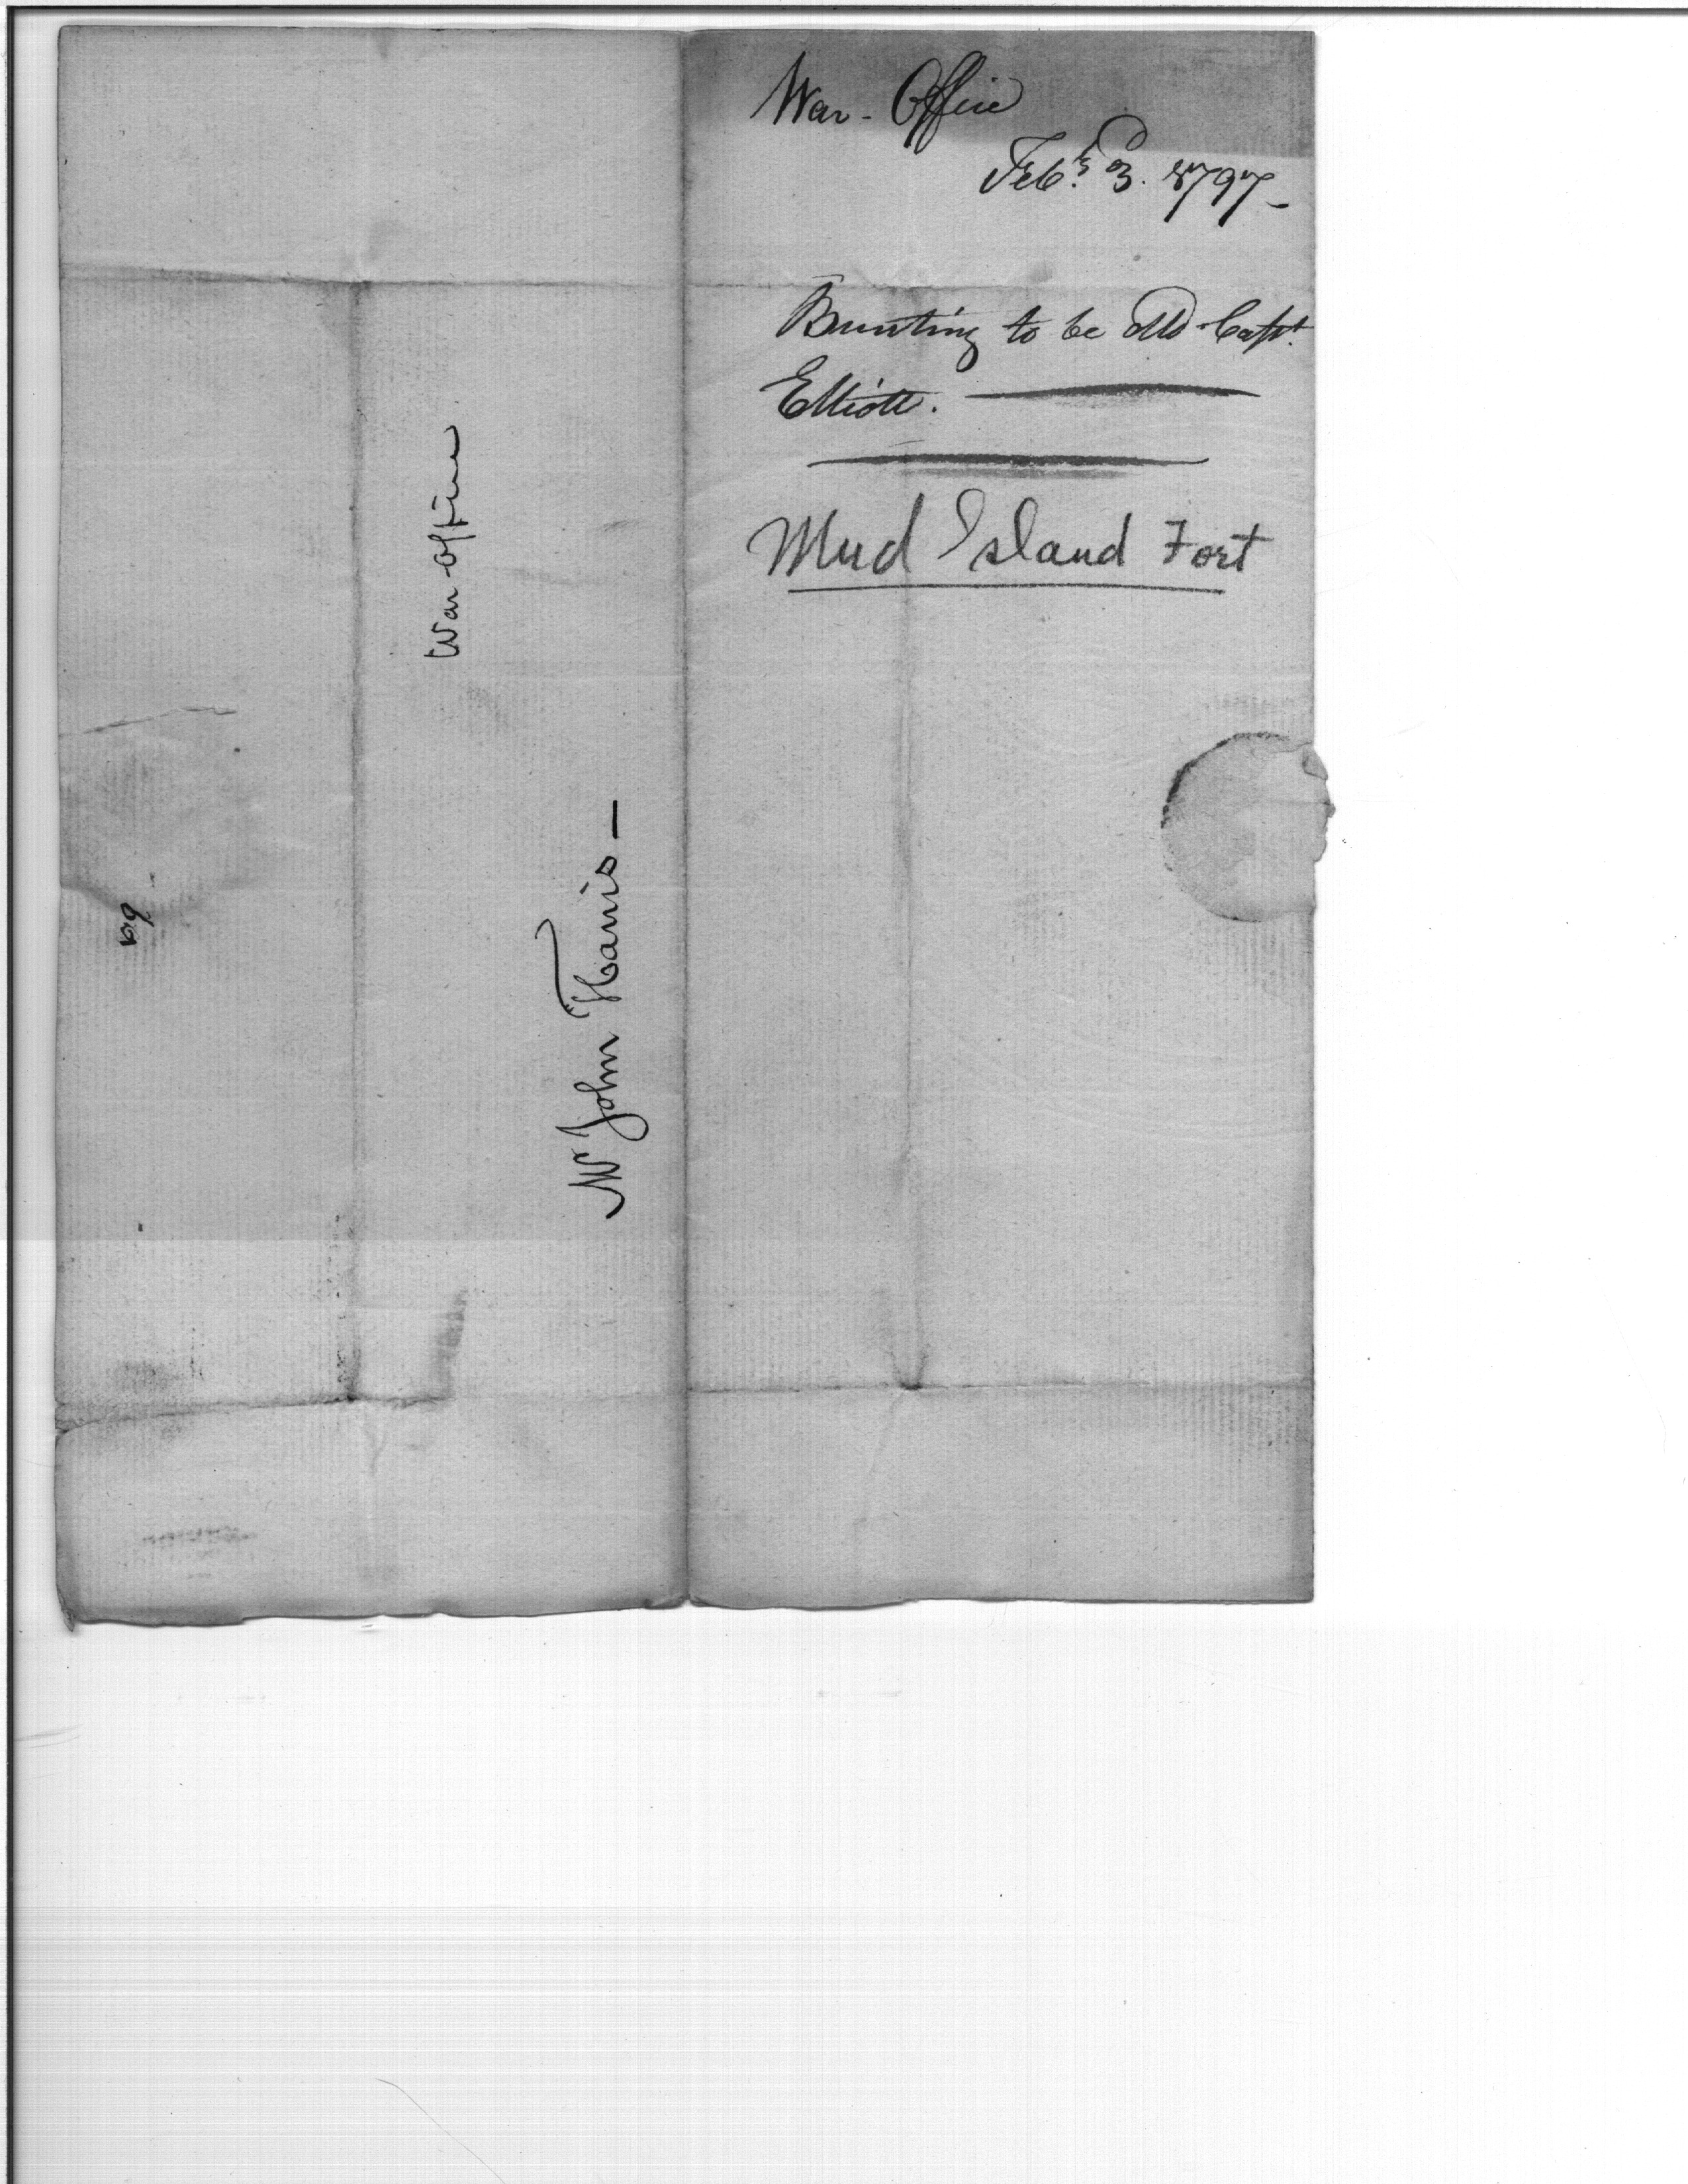 War-Office
Feby. 3. 1797-
Bunting to be dld Capt.
Elliott.
Mud Island Fort
War office
Mr John Harris-